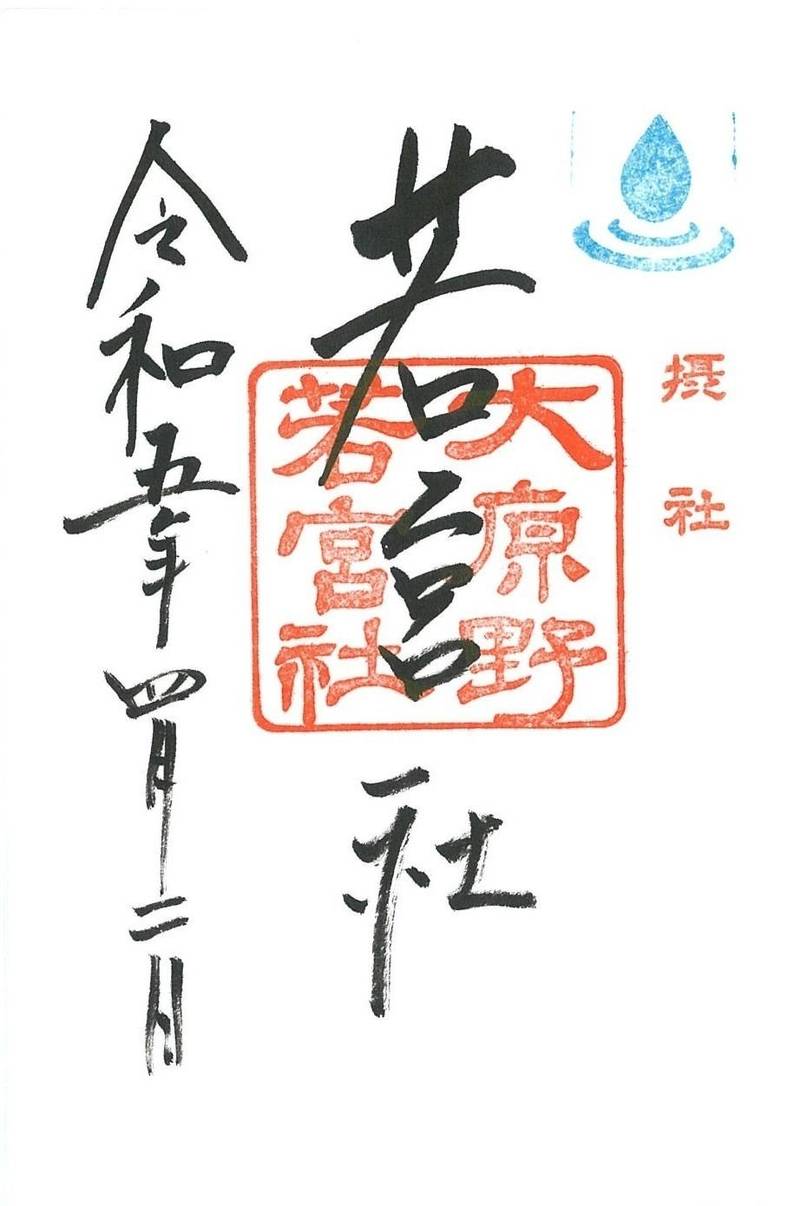 摂社
大原野
若宮社
若宮社
令和五年四月二日